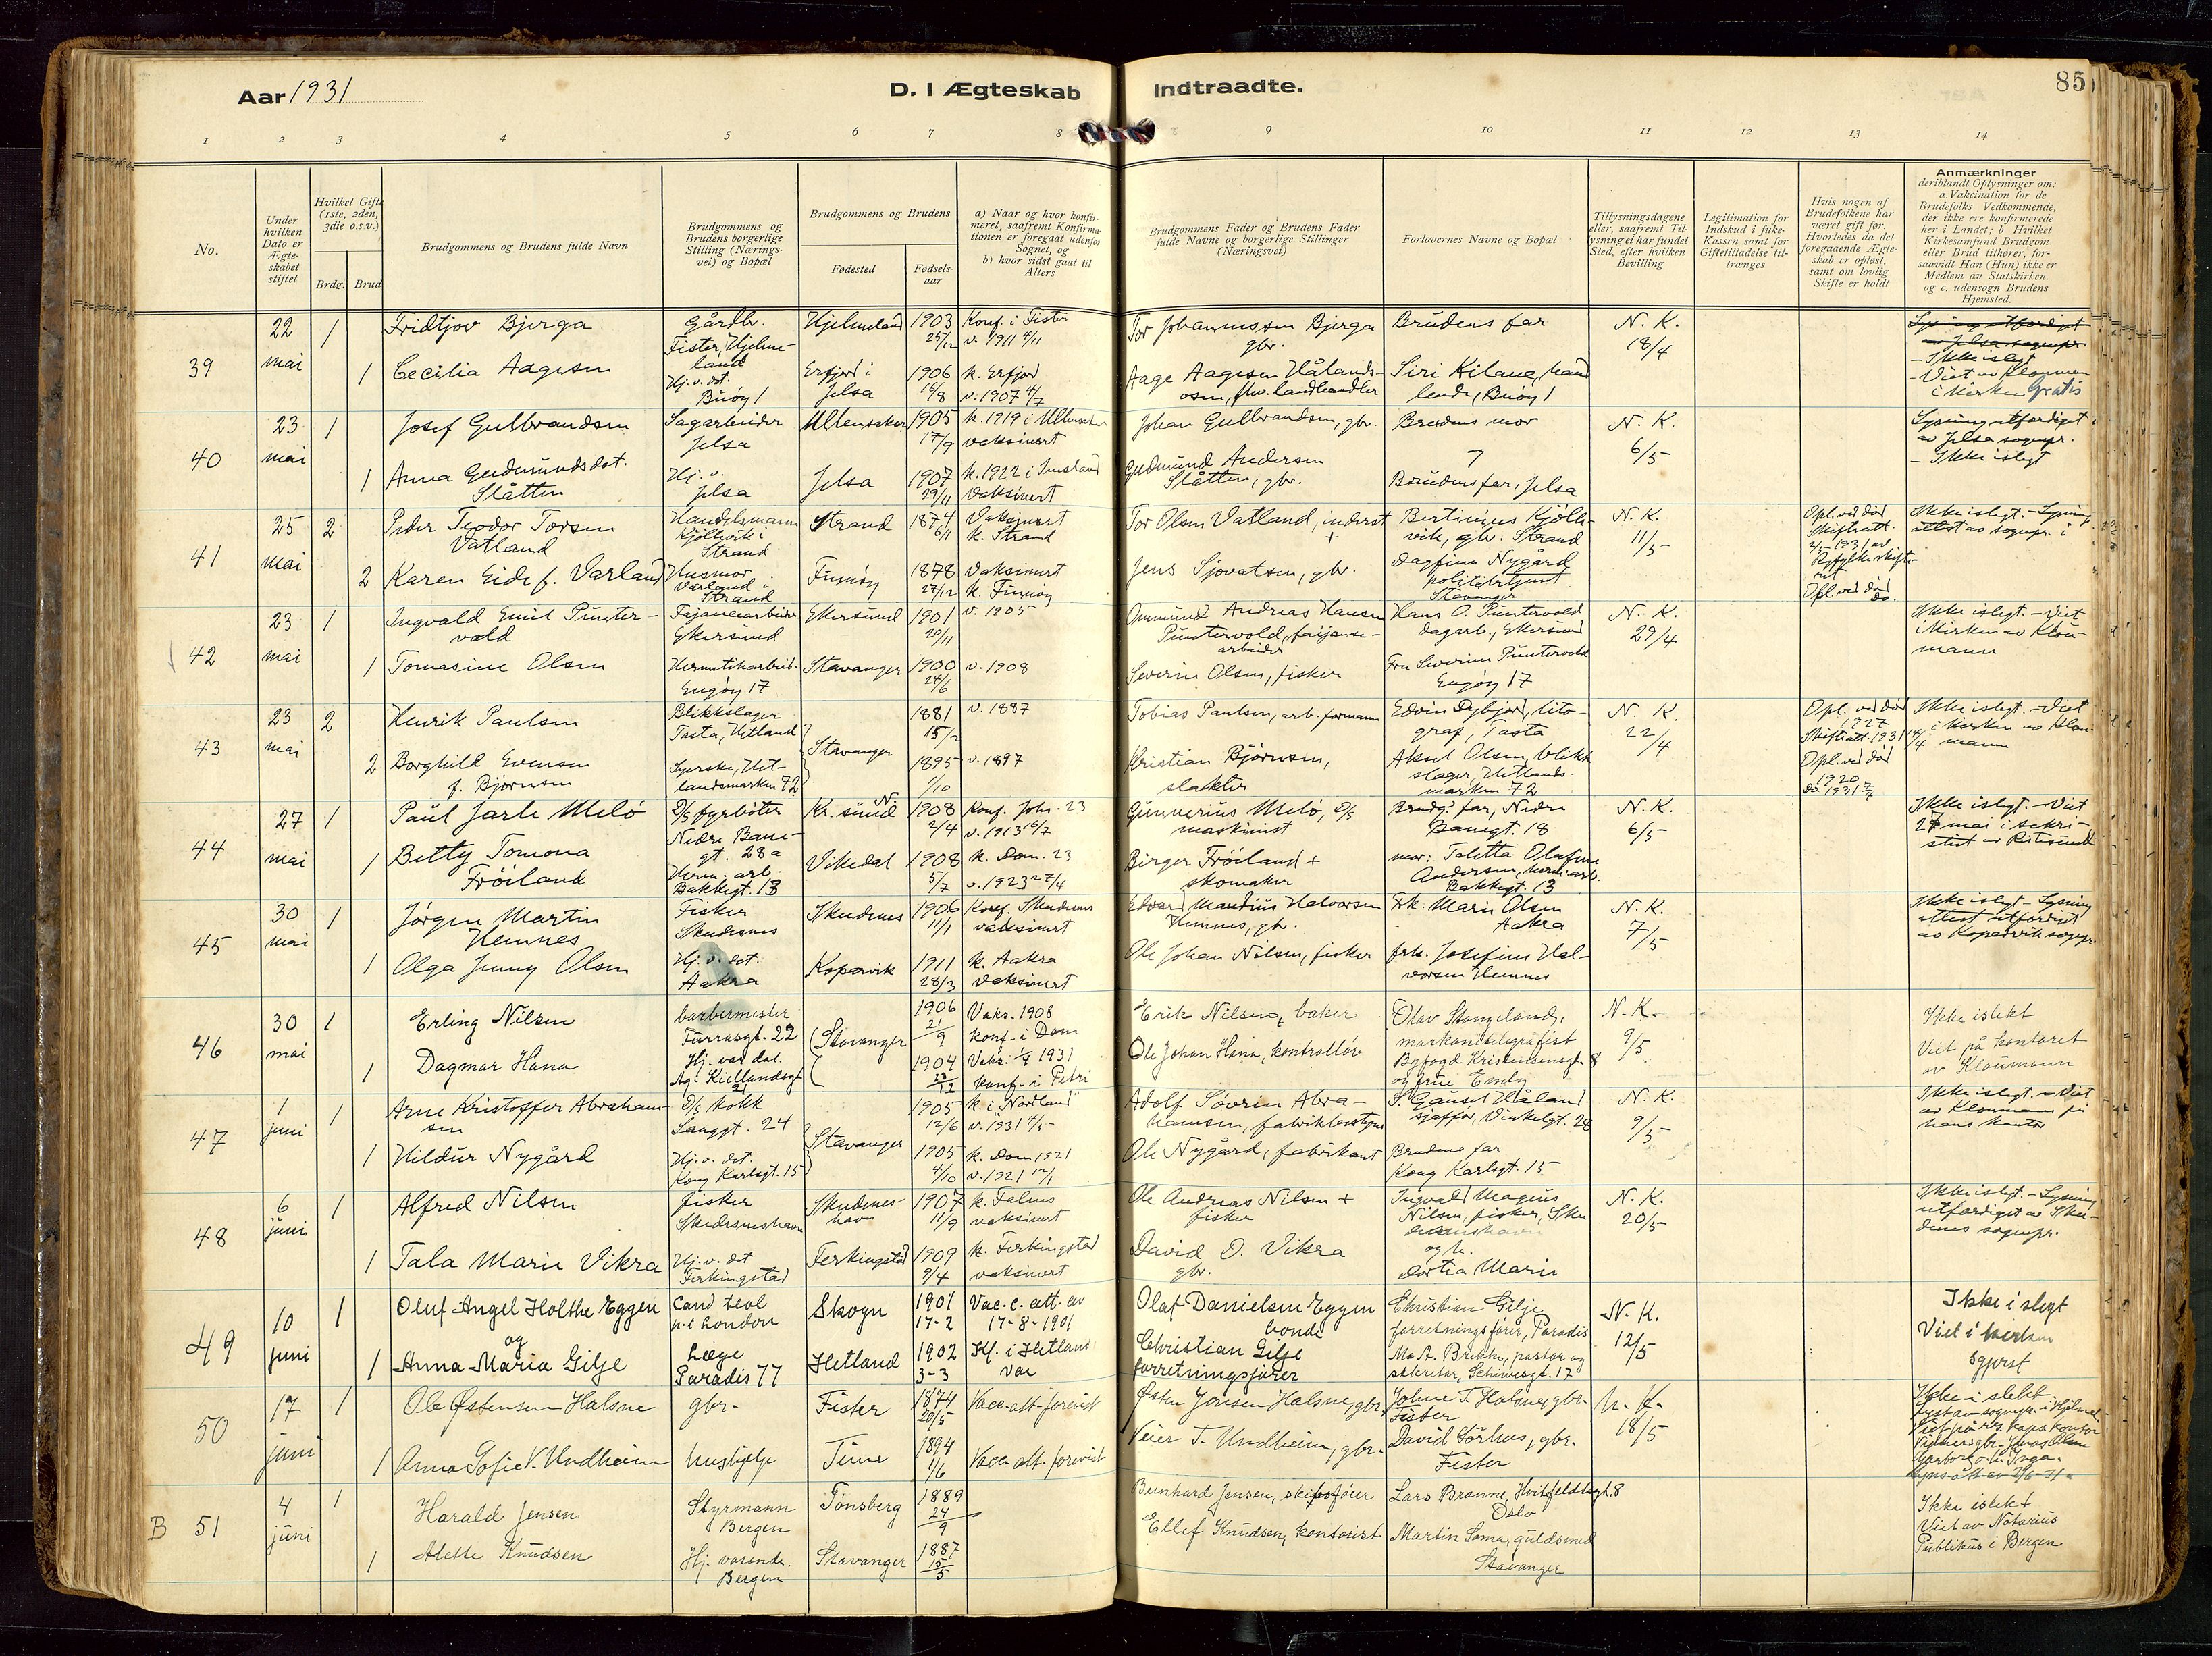 Aar 1931
D. I Ægteskab Indtraadte.
85
1 2 3 4 5 6 7 8 9 10 11 12 13 14
No.
Under hvilken Dato er Ægteskabet stiftet
Hvilket Gifte (1ste, 2den, 3die o.s.v.)
Brdg. Brud
Brudgommens og Brudens fulde Navn
Brudgommens og Brudens borgerlige Stilling (Næringsvei) og Bopæl
Brudgommens og Brudens
Fødested
Fødselsaar
a) Naar og hvor konfirmeret, saafremt Konfirmationen er foregaat udenfor Sognet, og
b) hvor sidst gaat til Alters
Brudgommens Fader og Brudens Fader fulde Navne og borgerlige Stillinger (Næringsvei)
Forlovernes Navne og Bopæl
Tillysningsdagene eller, saafremt Tillysning ei har fundet Sted, efter hvilken Bevilling
Legitimation for Indskud i fuke-Kassen samt for Giftetilladelse tiltrænges
Hvis nogen af Brudefolkene har været gift før. Hvorledes da det foregaaende Ægteskab er opløst, samt om lovlig Skifte er holdt
Anmærkninger
deriblandt Oplysninger om: a. Vakcination for de Brudefolks Vedkommende, der ikke ere konfirmerede her i Landet; b Hvilket Kirkesamfund Brudgom eller Brud tilhører, forsaavidt Han (Hun) ikke er Medlem av Statskirken. og c. udensogn Brudens Hjemsted.
39
22 mai 1 Fridtjov Bjerga Gårdbr. Fister, Hjelmeland Hjelmeland 1903 25/12 Konf. i Fister v. 1911 4/11
Tor Johannessen Bjerga gbr. Brudens far N. K. 18/4
1 Cecilia Aagesen Hj. v. det. Buøy 1 Erfjord i Jelsa 1906 16/8 k. Erfjord v. 1907 4/7
Aage Aagesen Hålandsosen, landhandler Siri Kilane, handlende, Buøy 1
Lysning utferdiget av Jelsa sognepr.
- Ikke i slegt
- Viet av Kloumann i kirken gratis
40
23 mai 1 Josef Gulbrandsen Sagarbeider Jelsa Ullensaker 1905 17/9 k. 1919 i Ullensaker vaksinert
Johan Gulbrandsen, gbr. Brudens mor N. K. 6/5
1 Anna Gudmundsdat. Slåtten Hj. v. Jelsa Jelsa 1907 29/11 k. 1922 i Imsland vaksinert
Gudmund Andersen Slåtten, gbr. Brudens far, Jelsa
Lysning utferdiget av Jelsa sognepr.
- Ikke i slegt
41
25 mai 2 Peder Teodor Torsen Vatland Handelsmann Kjølevik i Strand Strand 1874 6/1 Vaksinert k. Strand
Tor Olsen Vatland, inderst + Bertinius Kjølevik, gbr. Strand N. K. 11/5
2 Karen Eide f. Varland Husmor Varland i Strand Finnøy 1878 27/12 Vaksinert k. Finnøy
Jens Sjovatsen, gbr. Dagfinn Nygård politibetjent Stavanger
Opl. ved død Skifteatt. 2/5 1931 av Ryfylke skifterett
Opl. ved død do.
Ikke i slegt. - Lysning attest av sognepr. i
42
23 mai 1 Ingvald Emil Puntervold Fajancearbeider Ekersund Ekersund 1901 20/11 v. 1905
Ommund Andreas Hansen Puntervold, faijansearbeider Hans O. Puntervold dagarb., Ekersund N. K. 29/4
1 Tomasine Olsen Hermetikarbeid. Engøy 17 Stavanger 1900 24/6 v. 1908
Severin Olsen, fisker Fru Severine Puntervold Engøy 17
Ikke i slegt. - Viet i kirken av Kloumann
43
23 mai 2 Henrik Paulsen Blikkslager Tasta, Hetland Stavanger 1881 15/2 v. 1887
Tobias Paulsen, arb. formann Edvin Dybfjord, litograf, Tasta N. K. 22/4
2 Borghild Evensen f. Bjørnsen Syerske, Hetlandsmarken 72 1895 1/10 v. 1897
Kristian Bjørnsen, slakter Aksel Olsen, blikkslager, Hetlandsmarken 72
Opl. ved død 1927 Skifteatt. 1931 14/4
Opl. ved død 1920 do. 1931
Ikke i slegt. - Viet i kirken av Kloumann
44
27 mai 1 Paul Jarle Melø D/S fyrbøter Nedre Banegt. 28a Kr. sund N. 1908 2/4 Konf. Joh. 23 v. 1913 16/7
Gunnerius Melø, D/S maskinist Brudg.s far, Nedre Banegt. 18 N. K. 6/5
1 Betty Tomona Frøiland Herm. arb. Bakkegt. 13 Vikedal 1908 5/7 k. Dom. 23 v. 1923 27/4
Birger Frøiland + skomaker mor: Taletta Olafine Andersen, herm. arb. Bakkegt. 13
Ikke i slegt. - Viet 27 mai i sakristiet av
45
30 mai 1 Jørgen Martin Hemnes Fisker Skudenes Skudenes 1906 11/1 Konf. Skudenes vaksinert
Edvard Mandius Halvorsen Hemnes, gbr. Frk. Marie Olsen Aakra N. K. 7/5
1 Olga Jenny Olsen Hj. v. det. Aakra Kopervik 1911 28/3 k. Aakra vaksinert
Ole Johan Nilsen, fisker frk. Josefine Halvorsen Hemnes
Ikke i slegt - Lysning attest utferdiget av Kopervik sognepr.
46
30 mai 1 Erling Nilsen barbermester Furrasgt. 22 Stavanger 1906 21/9 Vaks. 1908 konf. i Dom
Erik Nilsen, baker Olav Stangeland, markonitelegrafist N. K. 9/5
1 Dagmar Hana Hj. var. dat. Ag. Kiellandsgt 21 1904 23/12 Vaks. 1/4 1931 konf. i Petri
Ole Johan Hana, kontrollør Byfogd Kristensensgt. 8 og frue Emely
Ikke i slekt Viet på kontoret av Kloumann
47
1 juni 1 Arne Kristoffer Abrahamsen D/S kokk Langgt. 24 Stavanger 1905 12/6 k. i "Nordland" v. 1931 4/5
Adolf Søvrin Abrahamsen, fabrikbestyrer S. Gausel Håland sjaffør, Vinkelgt. 28 N. K. 9/5
1 Hildur Nygård Hj. v. det. Kong Karlsgt. 15 1905 4/10 k. Dom 1921 v. 1921 12/1
Ole Nygård, fabrikant Brudens far Kong Karlsgt. 15
Ikke i slegt. - Viet av Kloumann på hans kontor
48
6 juni 1 Alfred Nilsen fisker Skudesneshavn Skudeneshavn 1907 11/9 k. Falnes vaksinert
Ole Andreas Nilsen + fisker Ingvald Magnus Nilsen, fisker, Skudesneshavn N. K. 20/5
1 Tala Marie Vikra Hj. v. det Ferkingstad Ferkingstad 1909 9/4 k. Ferkingstad vaksinert
David O. Vikra gbr. og h. Dortia Marie
Ikke i slegt. - Lysning utferdiget av Skudenes sognepr.
49
10 juni 1 Oluf Angel Holthe Eggen Cand teol p.t London Skogn 1901 17-2 Vac. c. att. av 17-8-1901
og
Olaf Danielsen Eggen bonde Christian Gilje forretningsfører, Paradis N. K. 12/5
1 Anna Maria Gilje Læge Paradis 77 Hetland 1902 3-3 Kf. i Hetland Vac
Christian Gilje forretningsfører M. A. Brekke, pastor og sekretær, Schiwesgt. 17
Ikke i slegt Viet i kirken Sgprst
50
17 juni 1 Ole Østensen Halsne gbr. Fister 1874 20/5 Vacc. att. forevist
Østen Jonsen Halsne, gbr. Johne T. Halsne, gbr. Fister N. K. 18/5
1 Anna Sofie V. Undheim hushjelp Time 1894 1/6 Vacc. att. forevist
Veier T. Undheim, gbr. David Sørhus, gbr. Fister
Ikke i slekt Lyst av sognepr. i Hjelmel. Viet på res. kaps. kontor
B 51
4 juni 1 Harald Jensen Styrmann Bergen Tønsberg 1889 24/9
Bernhard Jensen, skibsfører Lars Branne, Hvitfeldtsgt. 8 Oslo
1 Alette Knudsen Hj. værende. Bergen Stavanger 1887 15/5
Ellef Knudsen, kontorist Martin Soma, guldsmed Stavanger
Ikke i slekt Viet av Notarius Publikus i Bergen